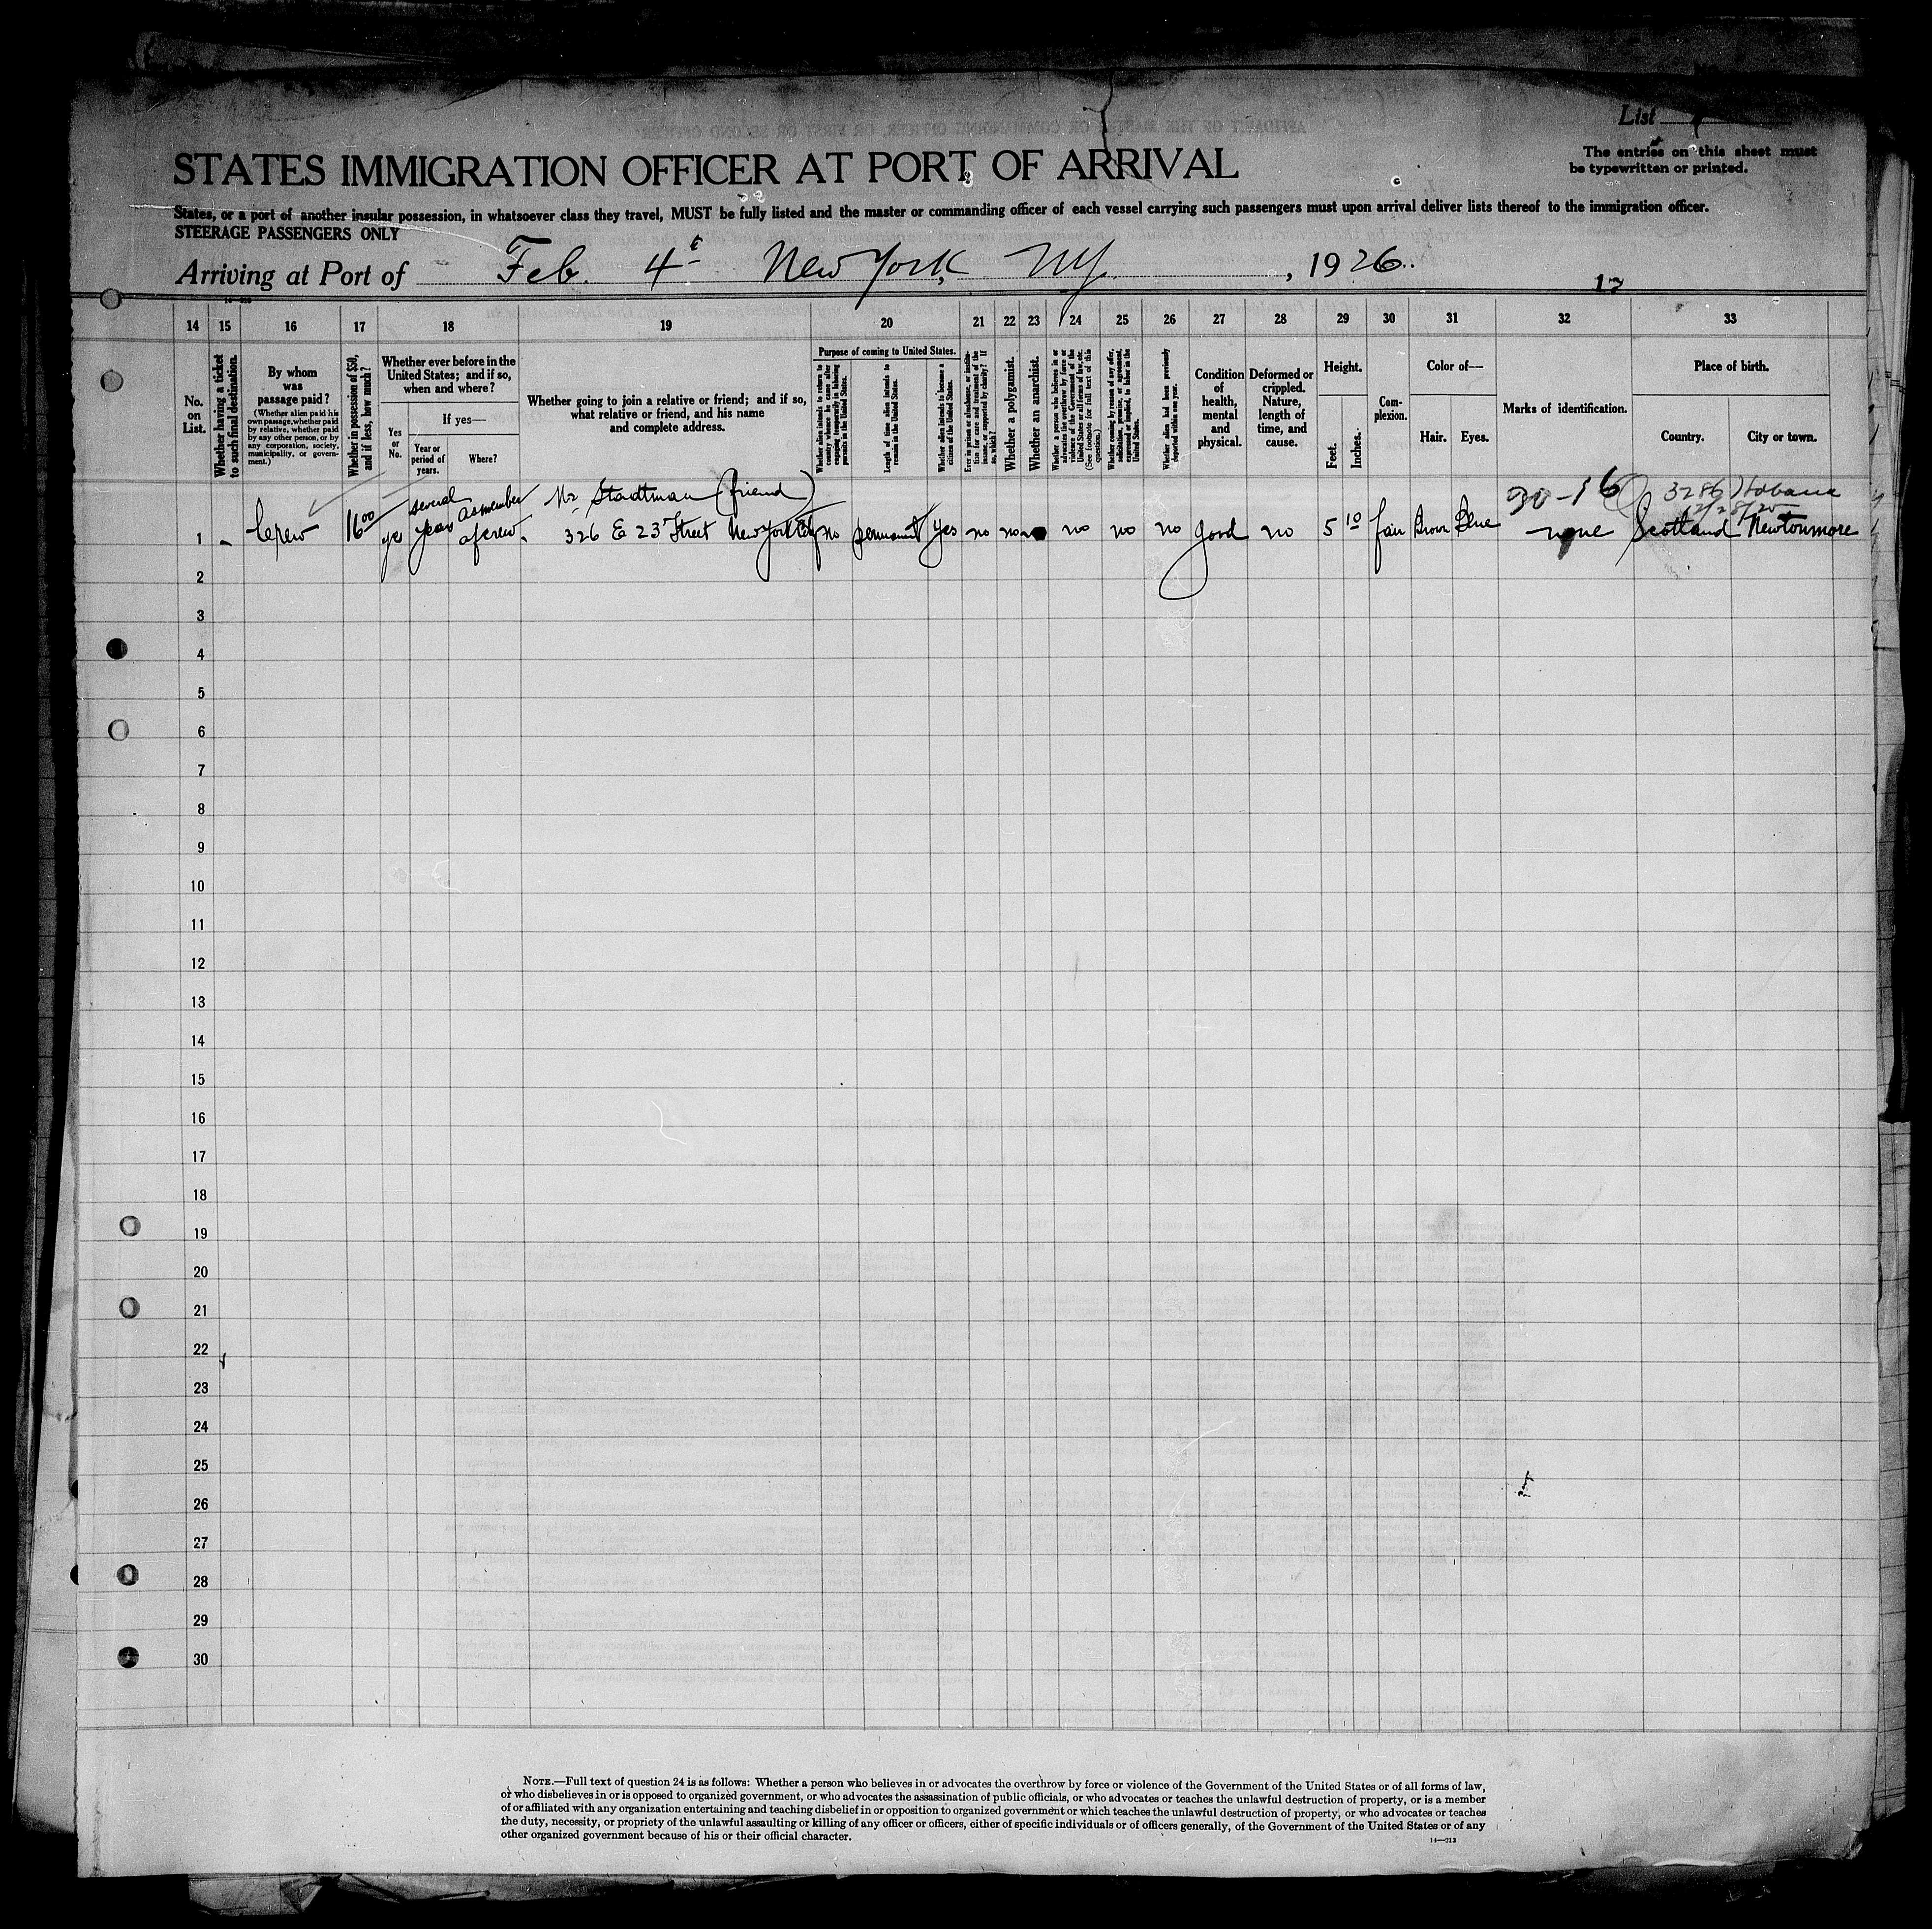 List
STATES IMMIGRATION OFFICER AT PORT OF ARRIVAL
The entries on this sheet must
be typewritten or printed.
States, or a port of another insular possession, in whatsoever class they travel, MUST be fully listed and the master or commanding officer of each vessel carrying such passengers must upon arrival deliver lists thereof to the immigration officer.
STEERAGE PASSENGERS ONLY
Arriving at Port of Feb. 4 New York, NY. , 1926.
14 15 16 17 18 19 20 21 22 23 24 25 26 27 28 29 30 31 32 33
No. on List.
Whether having a ticket to such final destination.
By whom was passage paid?
(Whether alien paid his own passage, whether paid by relative, whether paid by any other person, or by any corporation, society, municipality, or government.)
Whether in possession of $50, and if less, how much?
Whether ever before in the United States; and if so, when and where?
Yes or No.
If yes—
Year or period of years.
Where?
Whether going to join a relative or friend; and if so, what relative or friend, and his name and complete address.
Purpose of coming to United States.
Whether alien intends to return to country whence he came after engaging temporarily in laboring pursuits in the United States.
Length of time alien intends to remain in the United States.
Whether alien intends to become a citizen of the United States.
Ever in prison or almshouse, or institution for care and treatment of the insane, or supported by charity? If so, which?
Whether a polygamist.
Whether an anarchist.
Whether a person who believes in or advocates the overthrow by force or violence of the Government of the United States or all forms of law, etc. (See footnote for full text of this question.)
Whether coming by reason of any offer, solicitation, promise, or agreement, expressed or implied, to labor in the United States.
Whether alien had been previously deported within one year.
Condition of health, mental and physical.
Deformed or crippled. Nature, length of time, and cause.
Height.
Feet. Inches.
Complexion.
Color of—
Hair. Eyes.
Marks of identification.
Place of birth.
Country. City or town.
several as member Mr Stadtman (friend) 30-16 3286 Habana
12/28/25
1 - Crew 16 00 yes years of crew. 326 E 23 Street New York City no permanent yes no no no no no no good no 5 10 fair Brown Blue none Scotland Newtonmore
2
3
4
5
6
7
8
9
10
11
12
13
14
15
16
17
18
19
20
21
22
23
24
25
26
27
28
29
30
NOTE.—Full text of question 24 is as follows: Whether a person who believes in or advocates the overthrow by force or violence of the Government of the United States or of all forms of law,
or who disbelieves in or is opposed to organized government, or who advocates the assassination of public officials, or who advocates or teaches the unlawful destruction of property, or is a member
of or affiliated with any organization entertaining and teaching disbelief in or opposition to organized government or which teaches the unlawful destruction of property, or who advocates or teaches
the duty, necessity, or propriety of the unlawful assaulting or killing of any officer or officers, either of specific individuals or of officers generally, of the Government of the United States or of any
other organized government because of his or their official character.
14—213